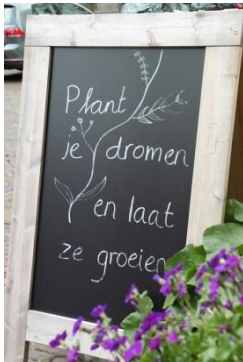 Plant
je dromen
en laat
ze groeien